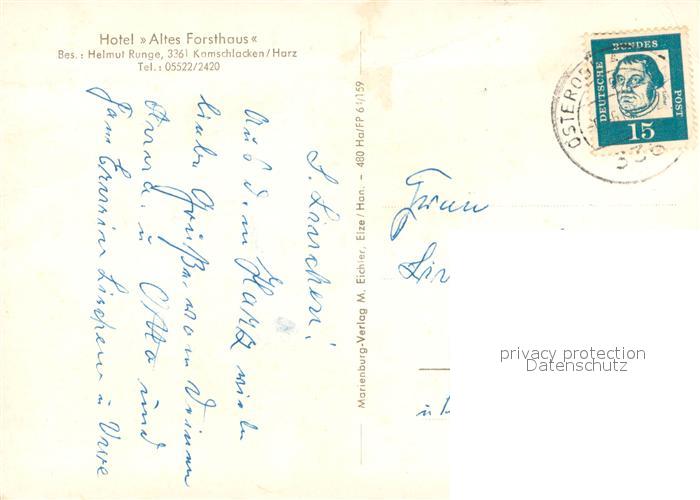 Hotel »Altes Forsthaus«
Bes.: Helmut Runge, 3361 Kamschlacken/Harz
Tel.: 05522/2420
L. Linschen!
Aus dem Harz viele
liebe Grüße von Deinen
Anna u Otto und
Marienburg-Verlag M. Eichler, Elze/Han. — 480 Ha/FP 61/159
DEUTSCHE
BUNDES
POST
15
OSTERO
336
Frau
privacy protection
Datenschutz